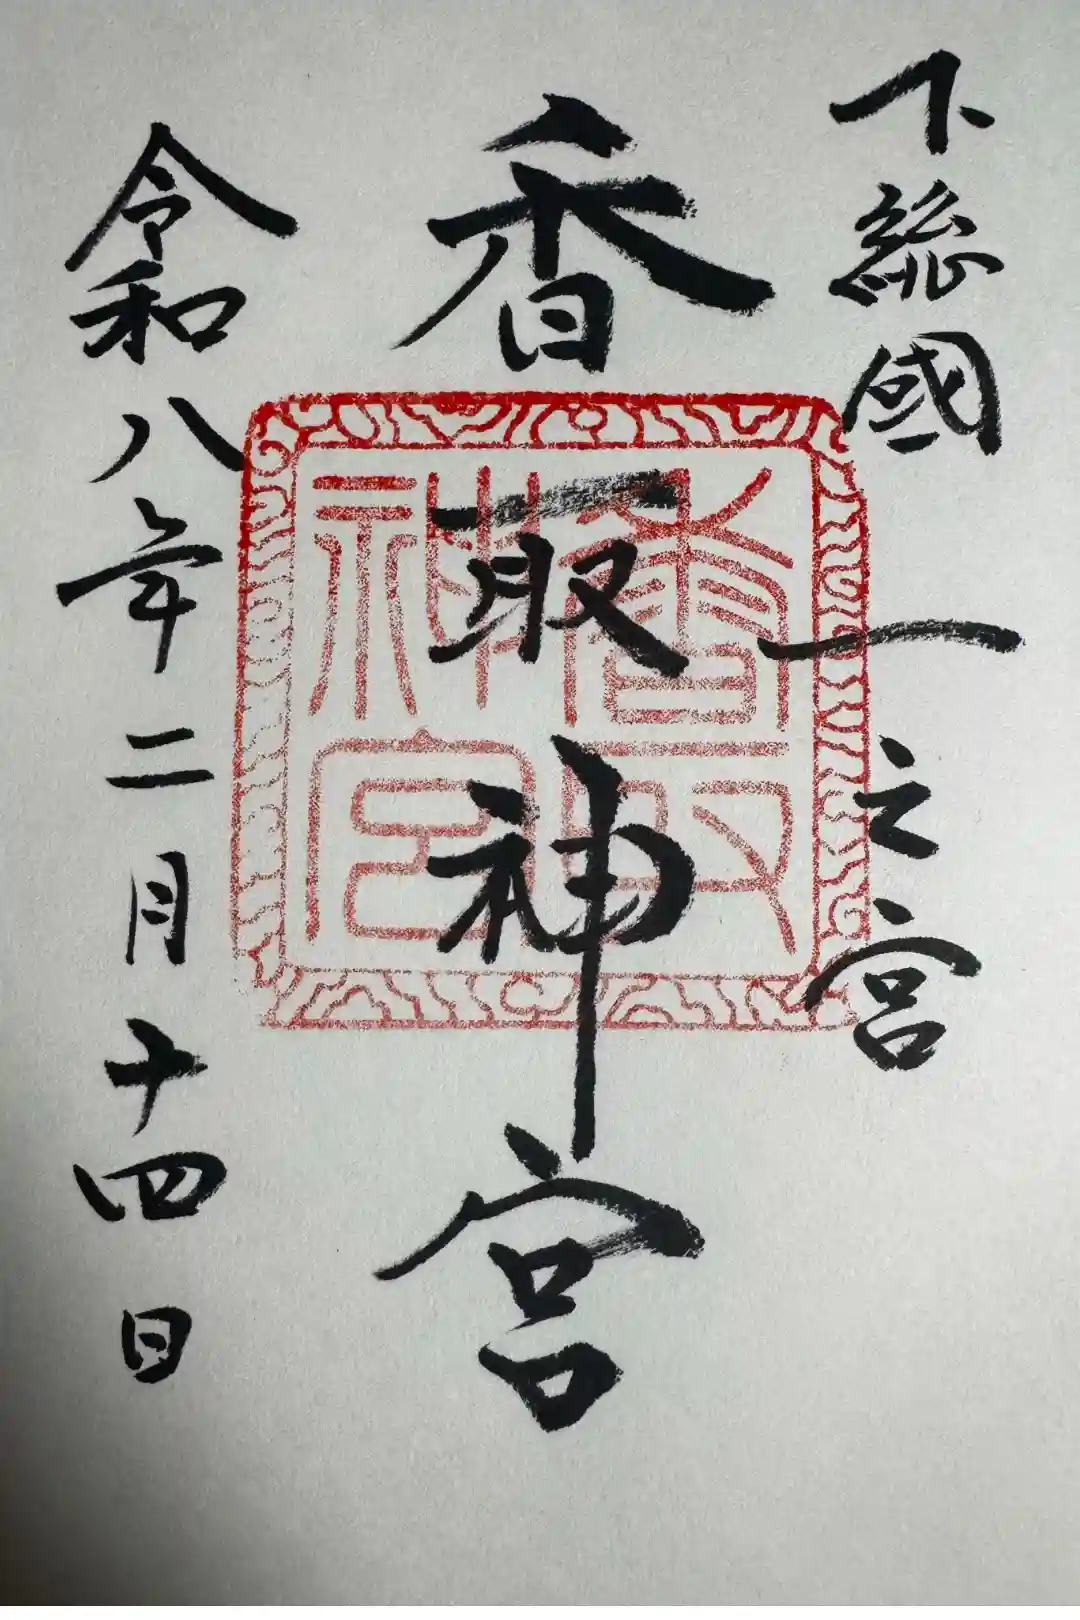 下総國一之宮
香取神宮
令和八年二月十四日
香取神宮